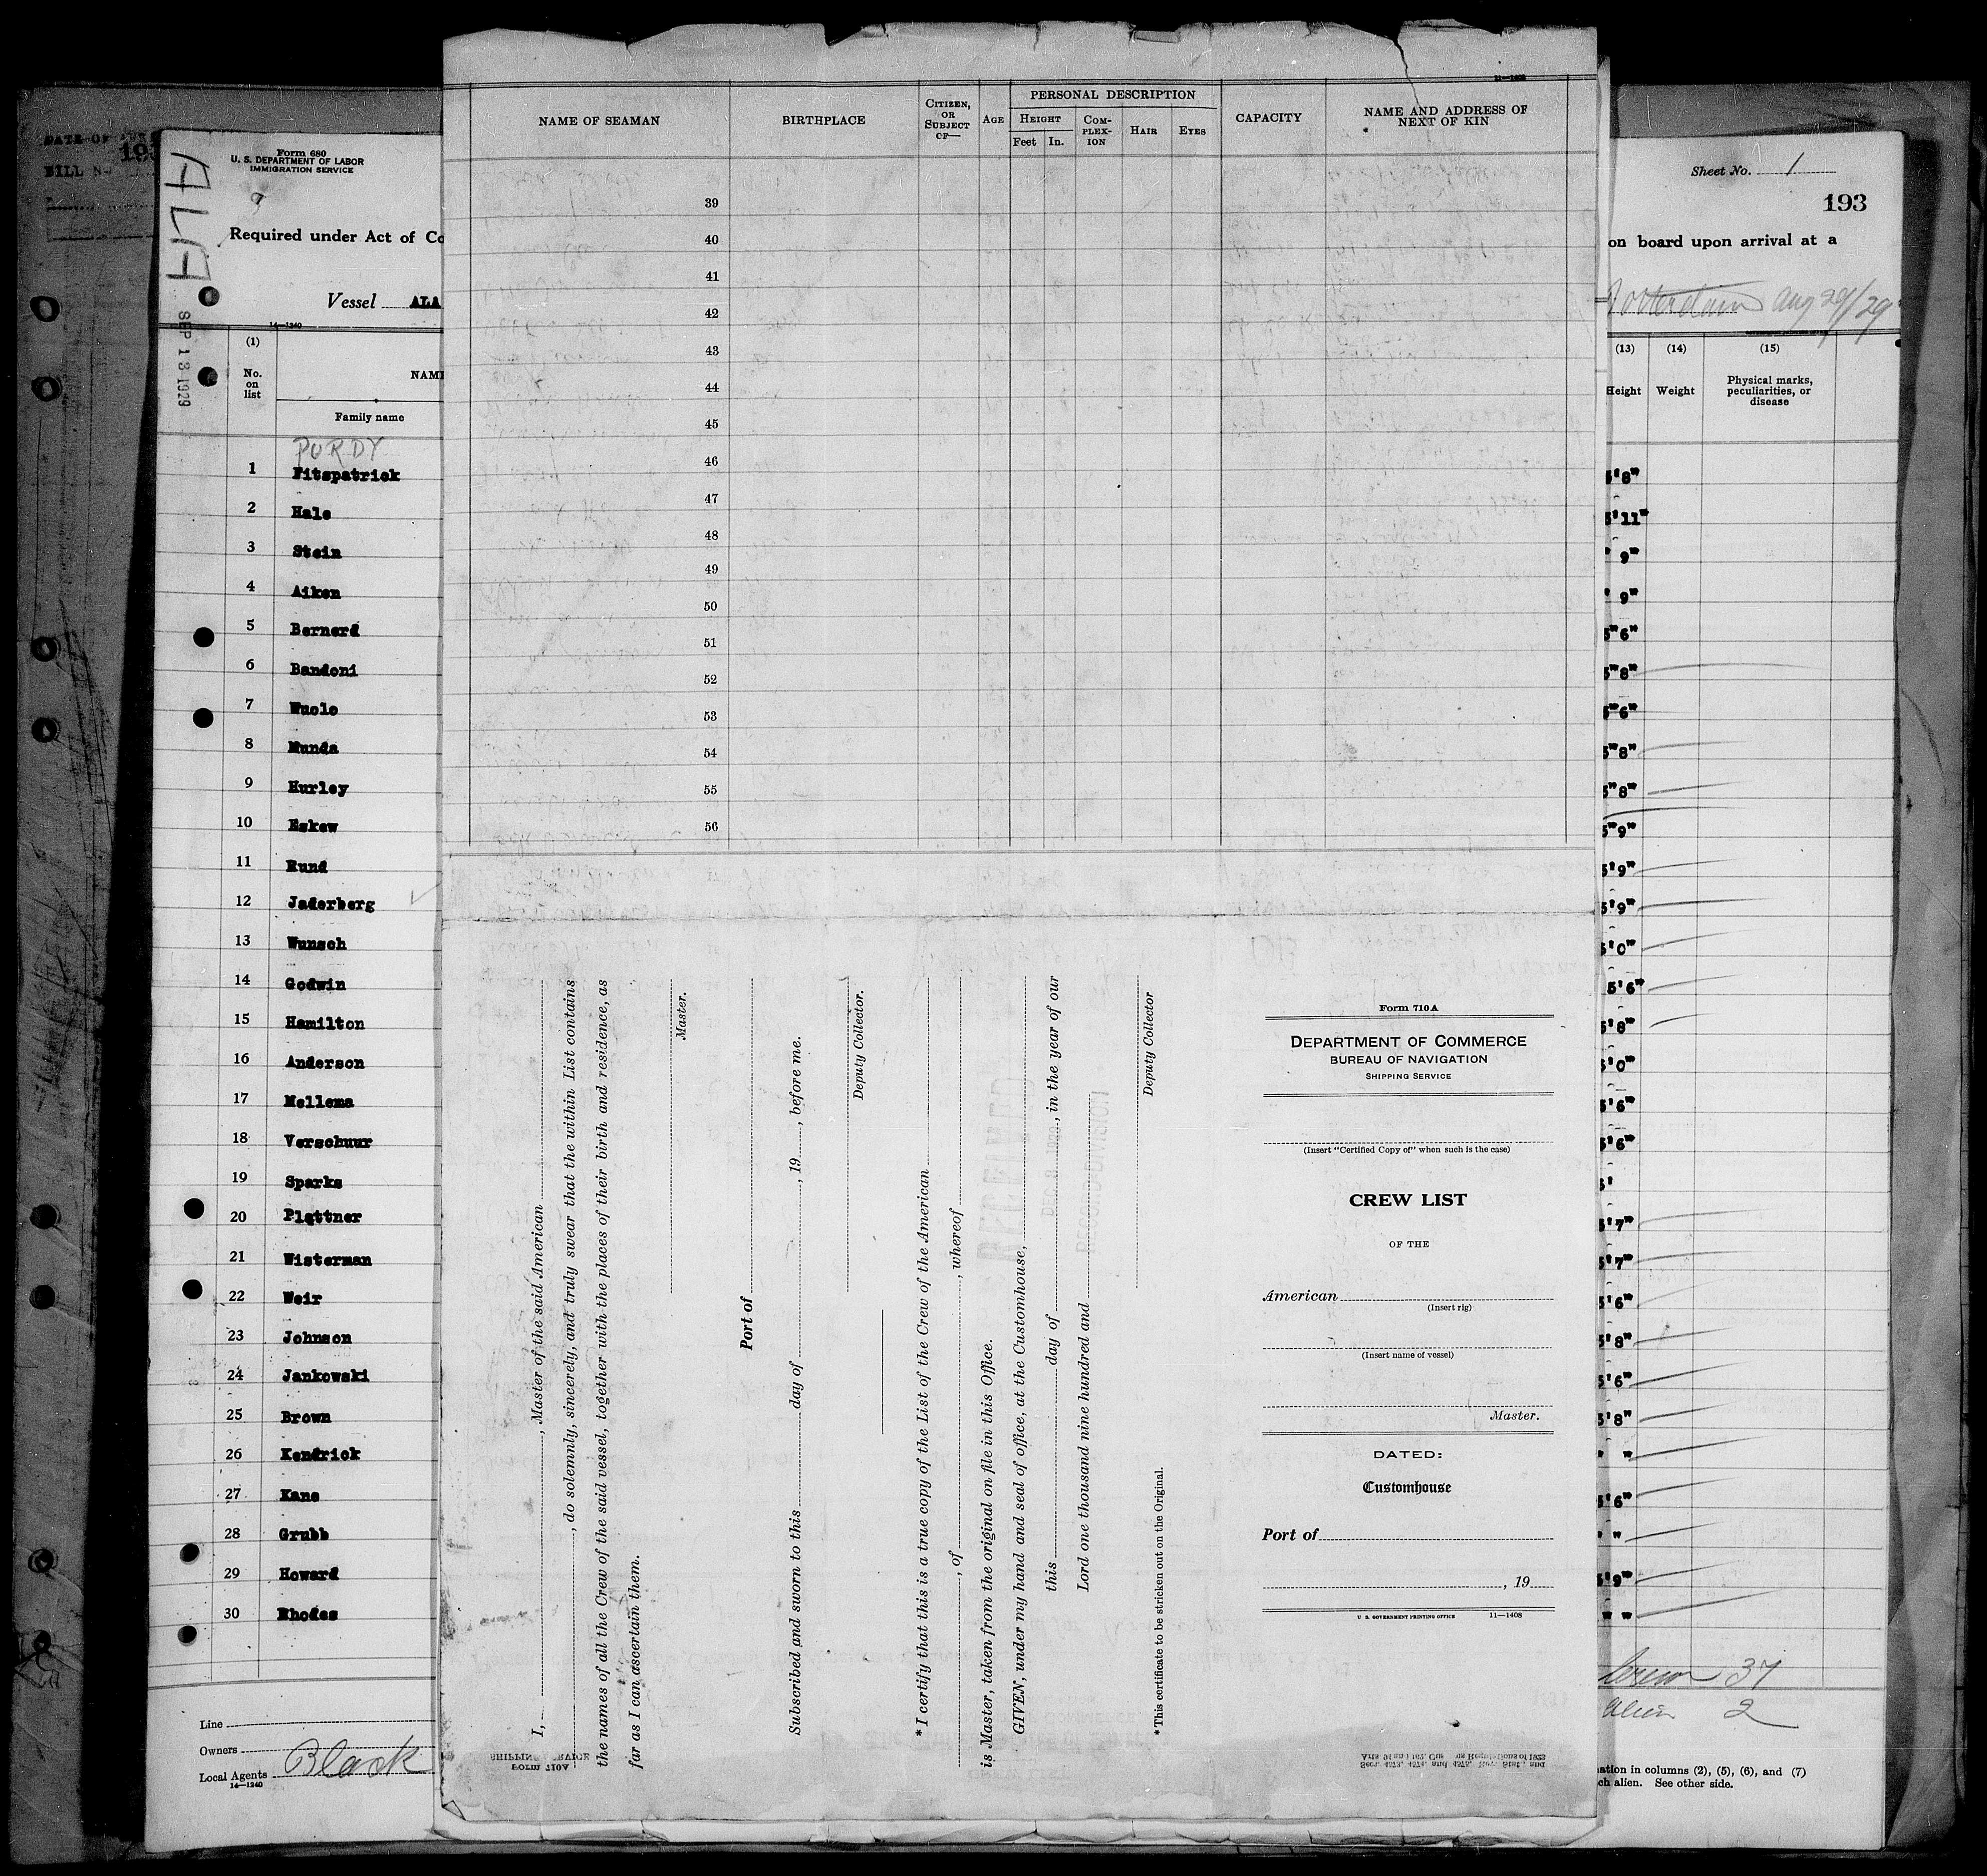 DATE OF
193
BILL NO
ALA
Form 680
U. S. DEPARTMENT OF LABOR
IMMIGRATION SERVICE
Required under Act of Co
Vessel ALA
14—1240
SEP 13 1929
(1)
No.
on
list
NAME
Family name
PURDY
1 Fitzpatrick
2 Hale
3 Stein
4 Aiken
5 Bernerd
6 Bandoni
7 Wuole
8 Munda
9 Hurley
10 Eskew
11 Rund
12 Jaderberg
13 Wunsch
14 Godwin
15 Hamilton
16 Anderson
17 Mellema
18 Verschuur
19 Sparks
20 Plettner
21 Wisterman
22 Weir
23 Johnson
24 Jankowski
25 Brown
26 Kendrick
27 Kane
28 Grubb
29 Howard
30 Rhodes
Line
Owners
Local Agents Black
14—1240
11—1408
NAME OF SEAMAN
BIRTHPLACE
CITIZEN, OR SUBJECT OF—
AGE
PERSONAL DESCRIPTION
HEIGHT
Feet In.
COM-PLEX-ION
HAIR
EYES
CAPACITY
NAME AND ADDRESS OF NEXT OF KIN
39
40
41
42
43
44
45
46
47
48
49
50
51
52
53
54
55
56
I, , Master of the said American
, do solemnly, sincerely, and truly swear that the within List contains
the names of all the Crew of the said vessel, together with the places of their birth and residence, as
far as I can ascertain them.
Master.
Port of
Subscribed and sworn to this day of , 19 , before me.
Deputy Collector.
* I certify that this is a true copy of the List of the Crew of the American
, of , whereof
is Master, taken from the original on file in this Office.
GIVEN, under my hand and seal of office, at the Customhouse,
this day of , in the year of our
Lord one thousand nine hundred and
Deputy Collector
* This certificate to be stricken out on the Original.
Form 710A
DEPARTMENT OF COMMERCE
BUREAU OF NAVIGATION
SHIPPING SERVICE
(Insert "Certified Copy of" when such is the case)
CREW LIST
OF THE
American
(Insert rig)
(Insert name of vessel)
Master.
DATED:
Customhouse
Port of
, 19
U. S. GOVERNMENT PRINTING OFFICE 11—1408
Sheet No. 1
193
on board upon arrival at a
Rotterdam Aug 29/29
(13) (14) (15)
Height
Weight
Physical marks, peculiarities, or disease
5'8"
5'11"
' 9"
' 9"
5"6"
5"8"
5"6"
5"8"
5"8"
5"9"
5'9"
5'9"
5'0"
5'6"
5'8"
5'0"
5'6"
5'6"
5'
5'7"
5'7"
5'6"
5'8"
5'6"
5'8"
" "
5'6"
" "
5'9"
" "
37
Alien 2
ation in columns (2), (5), (6), and (7)
ch alien. See other side.